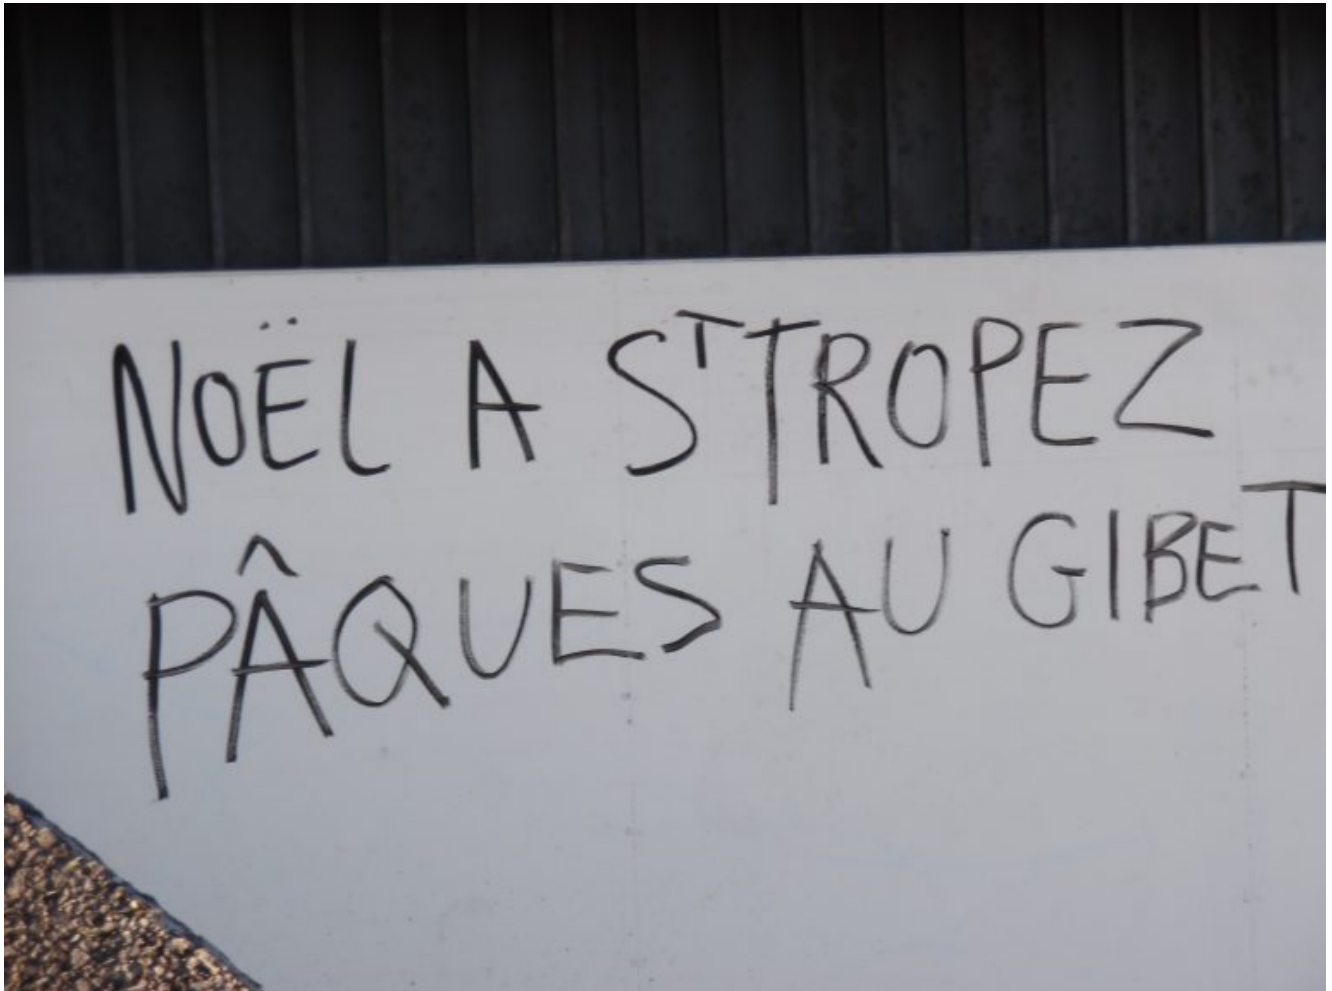 NOËL A ST TROPEZ
PÂQUES AU GIBET